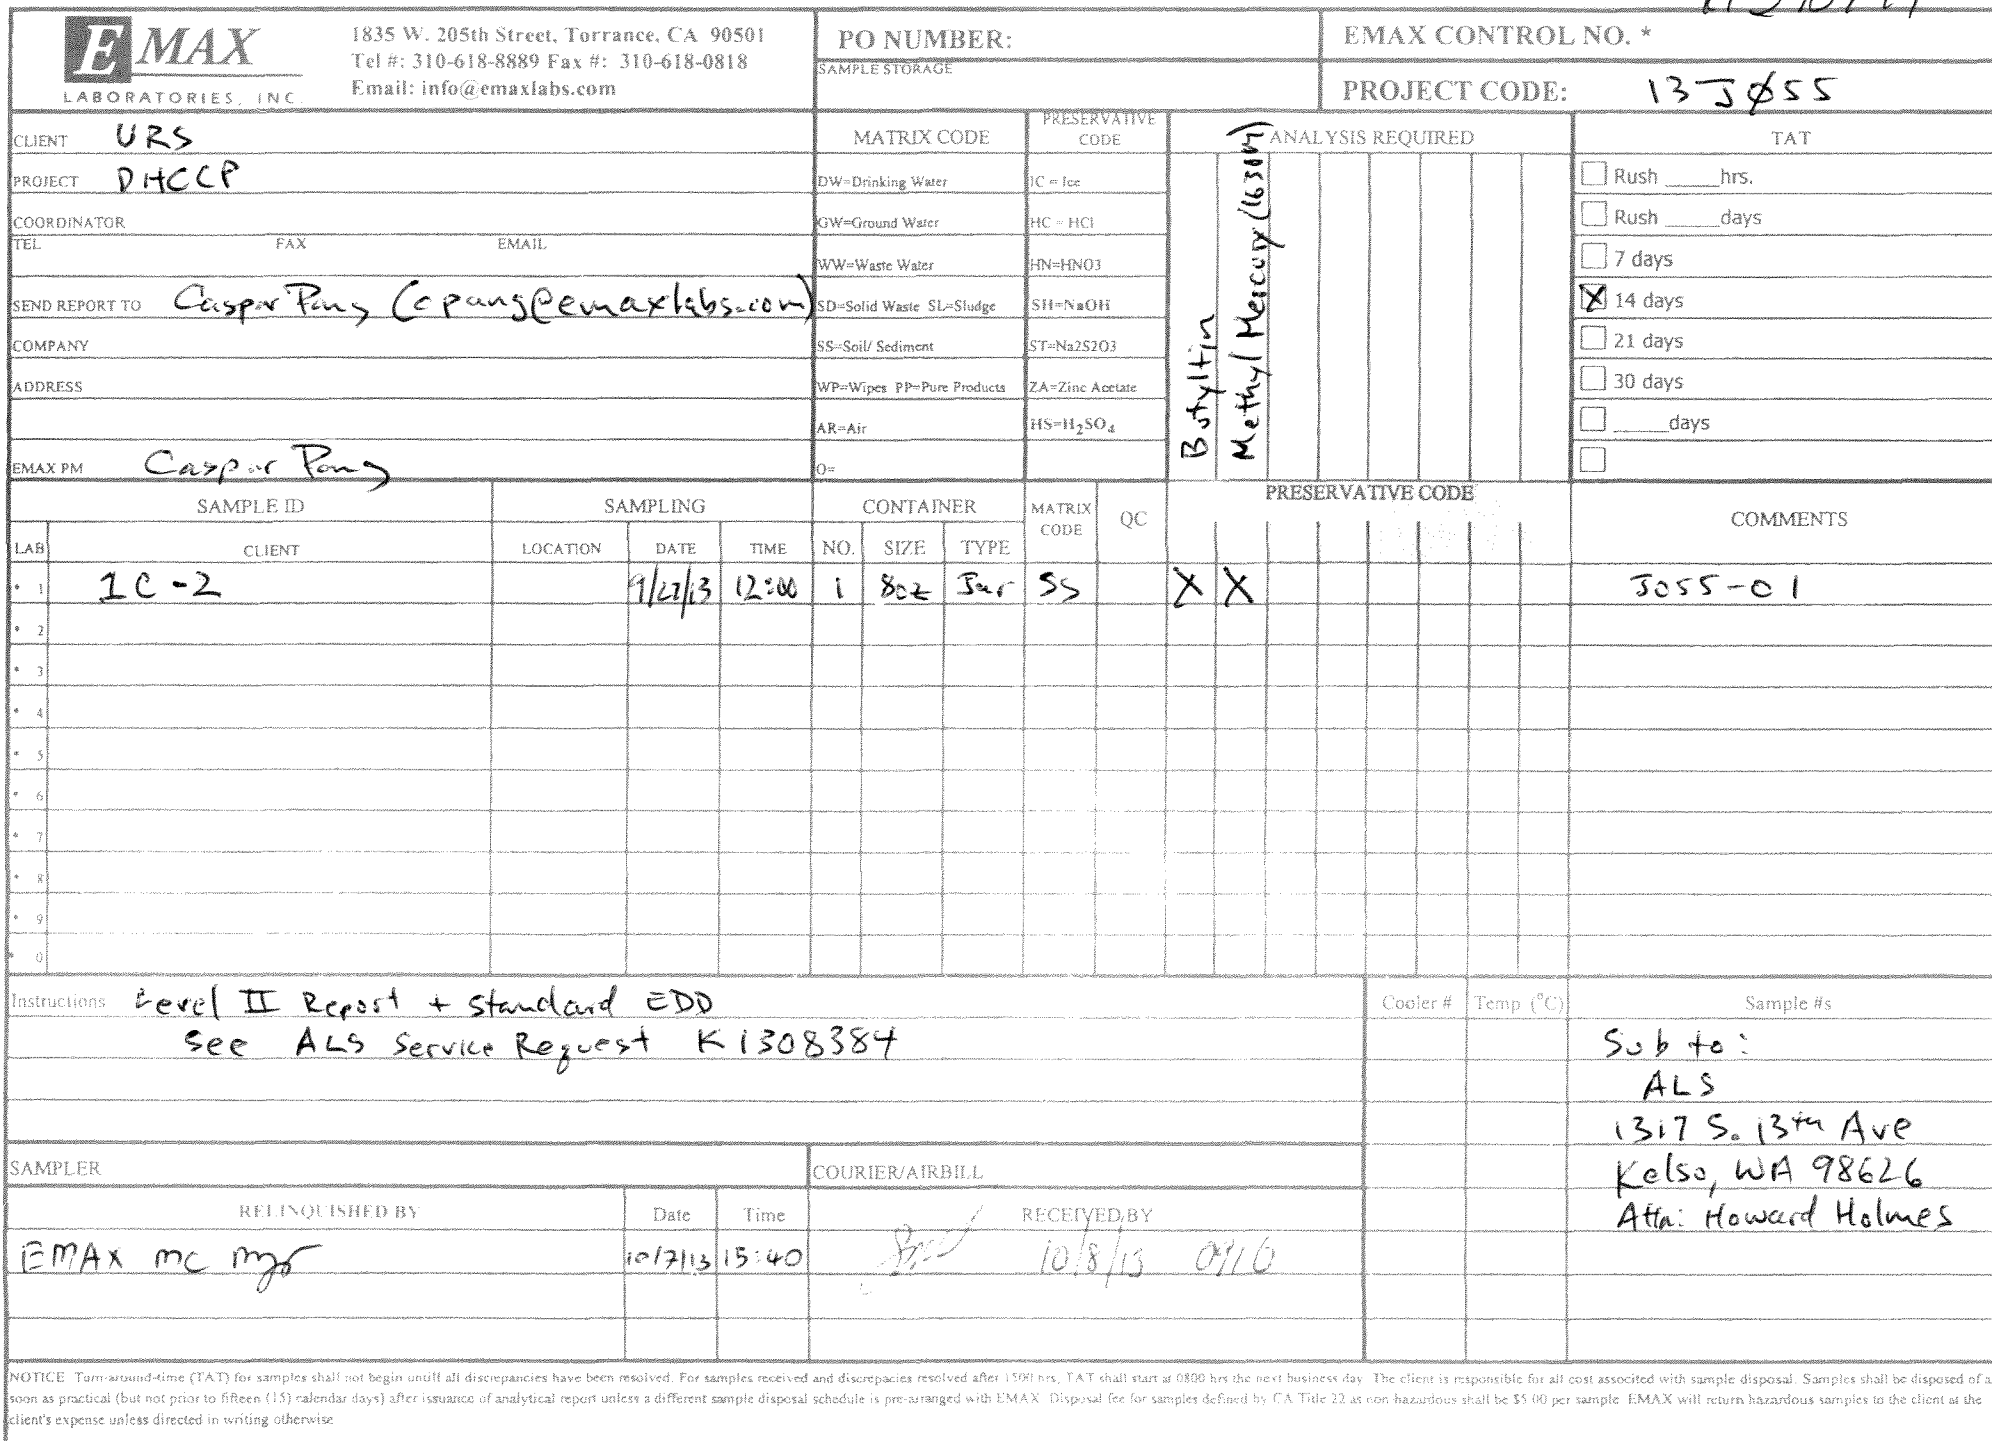 EMAX
LABORATORIES, INC.
1835 W. 205th Street, Torrance, CA 90501
Tel #: 310-618-8889 Fax #: 310-618-0818
Email: info@emaxlabs.com
PO NUMBER:
SAMPLE STORAGE
EMAX CONTROL NO. *
PROJECT CODE: 13JØ55
CLIENT URS
PROJECT DHCCP
COORDINATOR
TEL FAX EMAIL
SEND REPORT TO Caspar Pang (cpang@emaxlabs.com)
COMPANY
ADDRESS
EMAX PM Caspar Pang
MATRIX CODE
DW=Drinking Water
GW=Ground Water
WW=Waste Water
SD=Solid Waste SL=Sludge
SS=Soil/ Sediment
WP=Wipes PP=Pure Products
AR=Air
O=
PRESERVATIVE CODE
IC = Ice
HC = HCl
HN=HNO3
SH=NaOH
ST=Na2S2O3
ZA=Zinc Acetate
HS=H2SO4
ANALYSIS REQUIRED
Butyltin
Methyl Mercury (1630M)
TAT
Rush _____hrs.
Rush _____days
7 days
X 14 days
21 days
30 days
_____days
SAMPLE ID SAMPLING CONTAINER MATRIX CODE QC PRESERVATIVE CODE COMMENTS
LAB CLIENT LOCATION DATE TIME NO. SIZE TYPE
* 1 1C-2 12:00 1 8oz Jar SS X X J055-01
* 2
* 3
* 4
* 5
* 6
* 7
* 8
* 9
* 0
Instructions Level II Report + Standard EDD
See ALS Service Request K1308384
Cooler # Temp (°C) Sample #s
Sub to:
ALS
1317 S. 13th Ave
Kelso, WA 98626
Attn: Howard Holmes
SAMPLER COURIER/AIRBILL
RELINQUISHED BY Date Time RECEIVED BY
EMAX mc 10/7/13 15:40 10/8/13 0910
NOTICE Turn-around-time (TAT) for samples shall not begin untill all discrepancies have been resolved. For samples received and discrepacies resolved after 1500 hrs, TAT shall start at 0800 hrs the next business day. The client is responsible for all cost associted with sample disposal. Samples shall be disposed of a
soon as practical (but not prior to fifteen (15) calendar days) after issuance of analytical report unless a different sample disposal schedule is pre-arranged with EMAX. Disposal fee for samples defined by CA Title 22 as non hazardous shall be $5.00 per sample. EMAX will return hazardous samples to the client at the
client's expense unless directed in writing otherwise